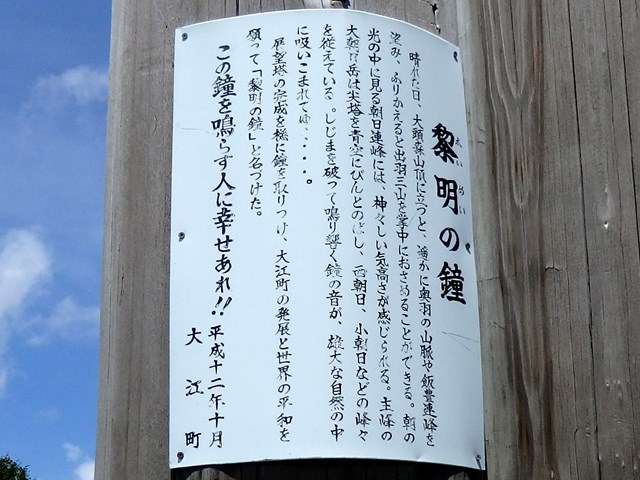 黎明の鐘
れい めい
晴れた日、大頭森山頂に立つと、遙かに奥羽の山脈や飯豊連峰を
望み、ふりかえると出羽三山を掌中におさめることができる。朝の
光の中に見る朝日連峰には、神々しい気高さが感じられる。主峰の
大朝日岳は尖塔を青空にぴんとのばし、西朝日、小朝日などの峰々
を従えている。しじまを破って鳴り響く鐘の音が、雄大な自然の中
に吸いこまれてゆ・・・。
展望塔の完成を機に鐘を取りつけ、大江町の発展と世界の平和を
願って「黎明の鐘」と名づけた。
この鐘を鳴らす人に幸せあれ!!
平成十二年十月
大江町